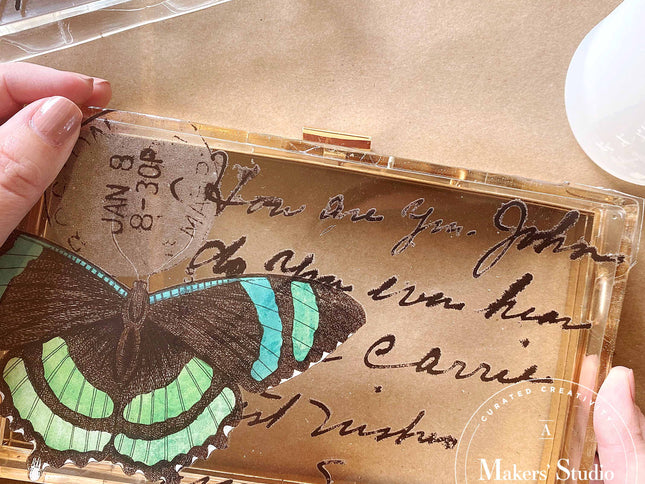 JAN 8
8-30P
MA
How are you. John
do you ever hear
Carrie
st wishes
CURATED CREATIVITY
A
Makers' Studio